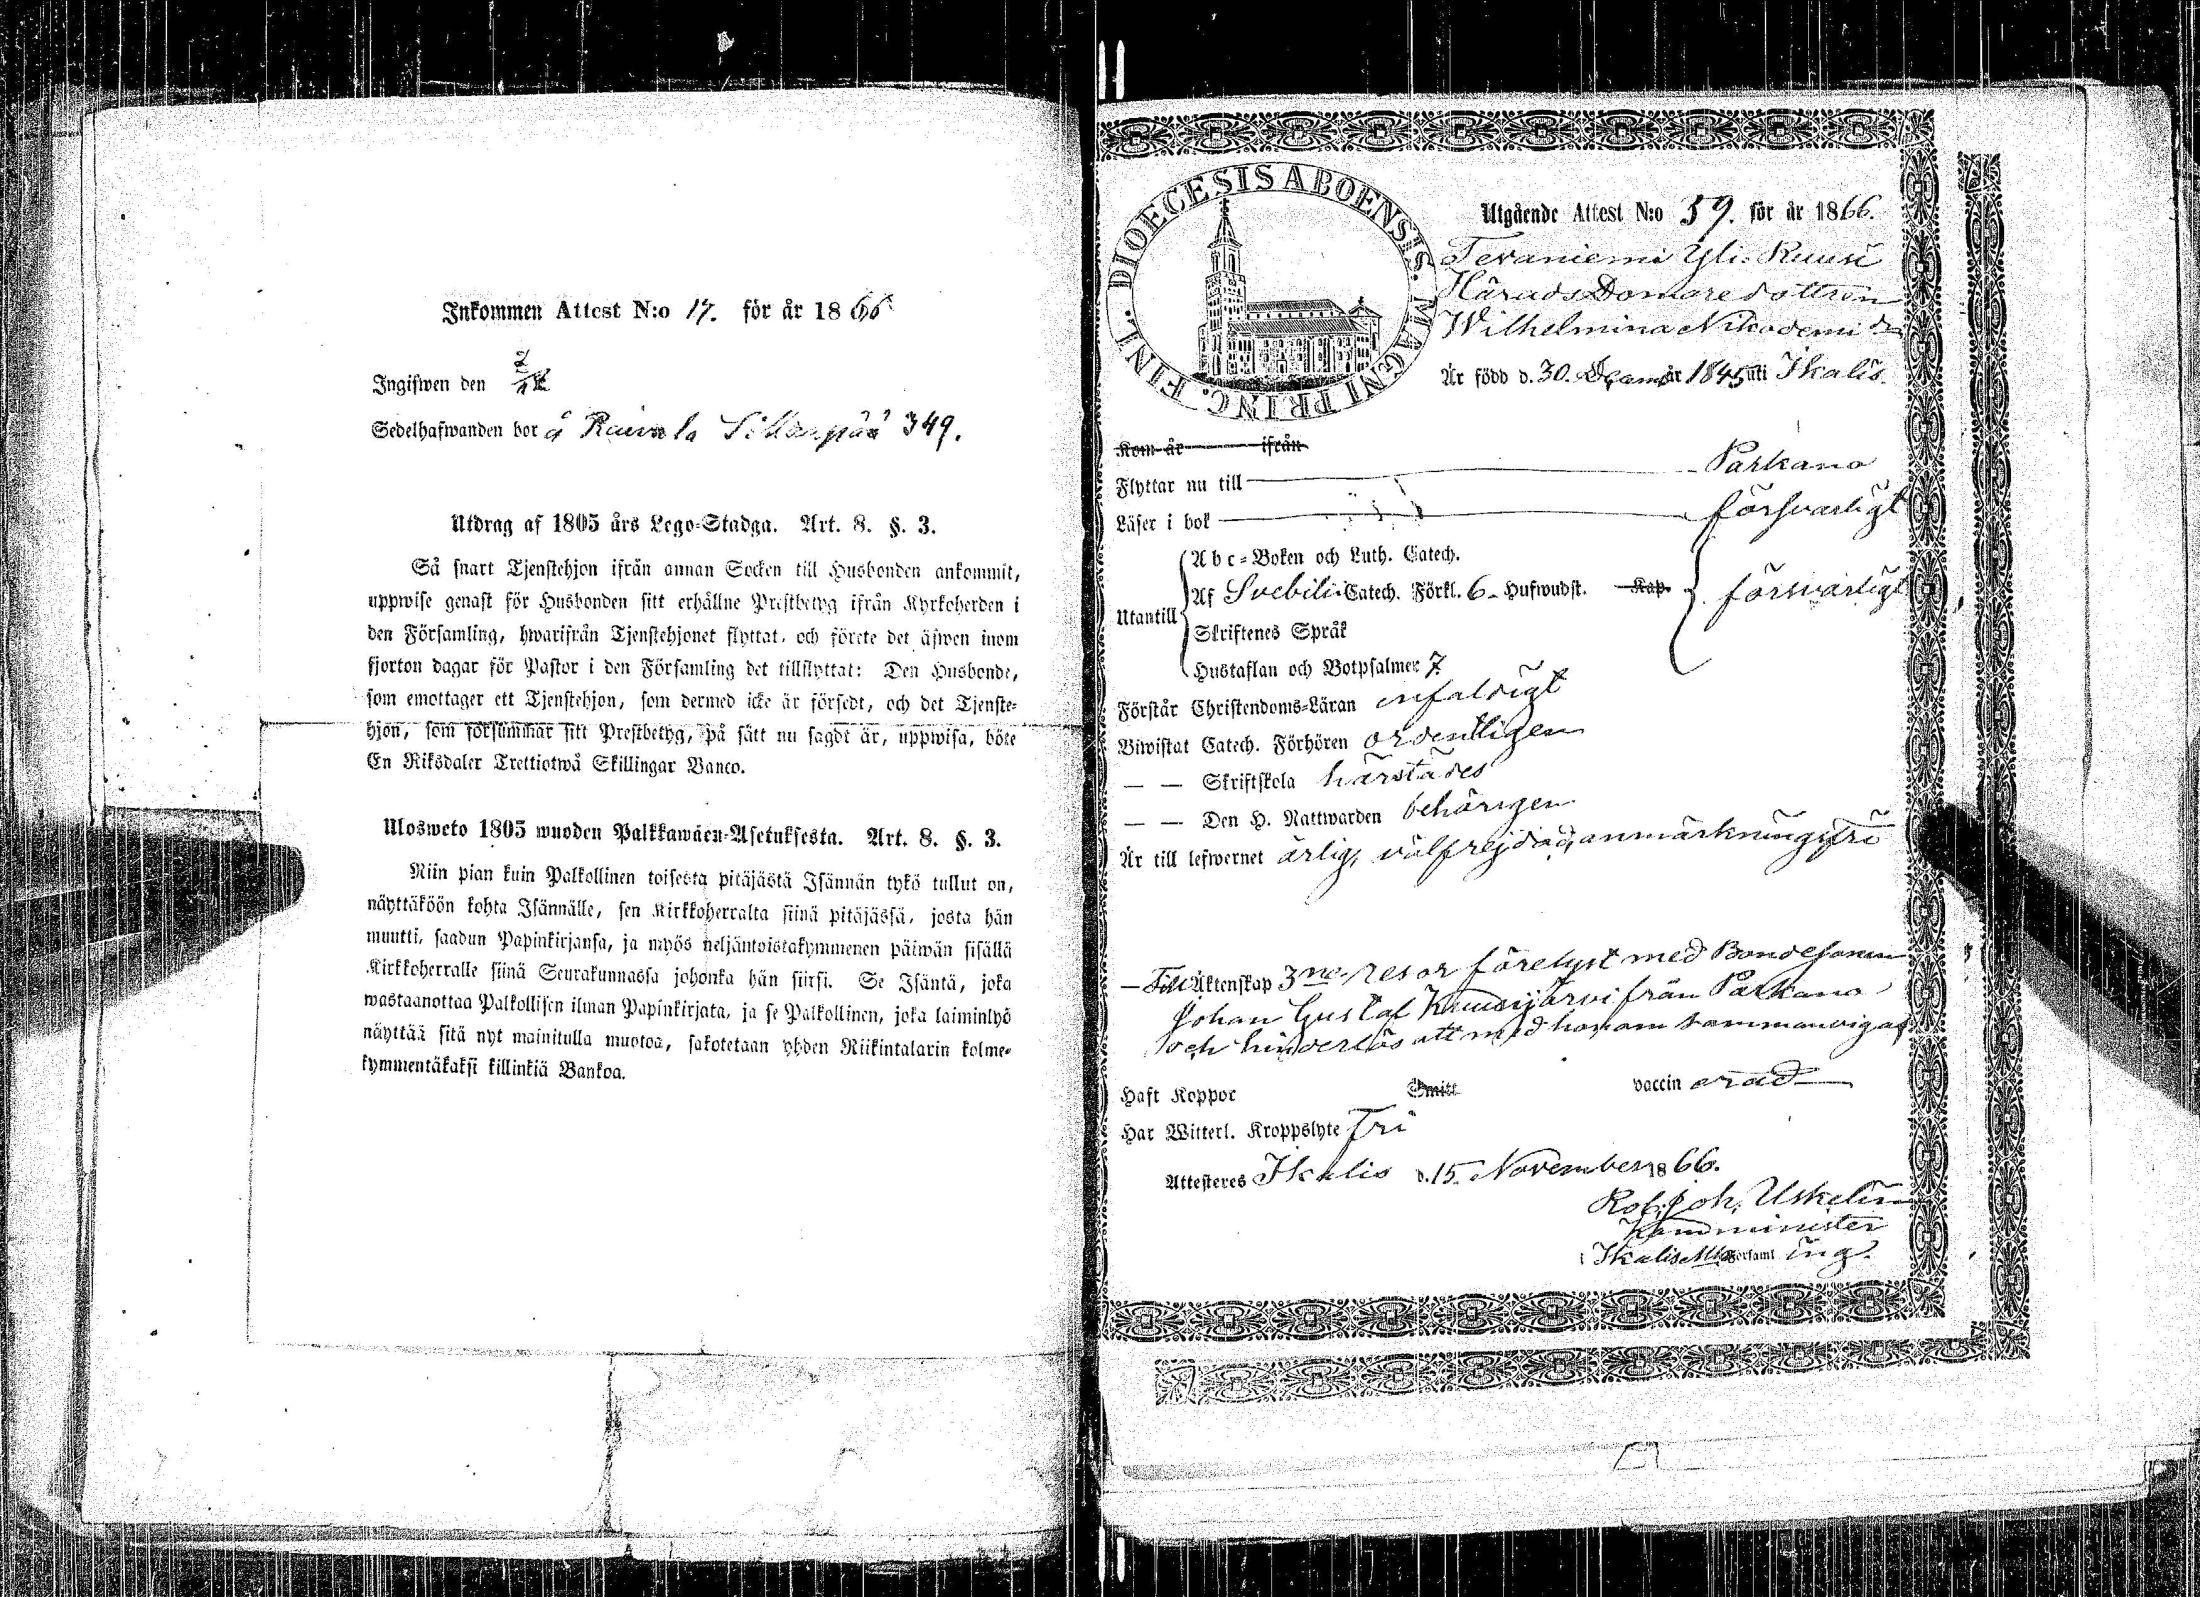 Inkommen Attest N:o 17. för år 1866
Ingifwen den 2/12
Sedelhafwanden bor å Raivala Sillanpää 349.
Utdrag af 1805 års Lego-Stadga. Art. 8. §. 3.
Så snart Tjenstehjon ifrån annan Socken till Husbonden ankommit,
uppwise genast för Husbonden sitt erhållne Prestbetyg ifrån Kyrkoherden i
den Församling, hwarifrån Tjenstehjonet flyttat, och förete det äfwen inom
fjorton dagar för Pastor i den Församling det tillflyttat: Den Husbonde,
som emottager ett Tjenstehjon, som dermed icke är försedt, och det Tjenste-
hjon, som försummar sitt Prestbetyg, på sätt nu sagdt är, uppwisa, böte
En Riksdaler Trettiotwå Skillingar Banco.
Ulosweto 1805 wuoden Palkkawäen-Asetuksesta. Art. 8. §. 3.
Niin pian kuin Palkollinen toisesta pitäjästä Isännän tykö tullut on,
näyttäköön kohta Isännälle, sen Kirkkoherralta siinä pitäjässä, josta hän
muutti, saadun Papinkirjansa, ja myös neljäntoistakymmenen päiwän sisällä
Kirkkoherralle siinä Seurakunnassa johonka hän siirsi. Se Isäntä, joka
wastaanottaa Palkollisen ilman Papinkirjata, ja se Palkollinen, joka laiminlyö
näyttää sitä nyt mainitulla muotoa, sakotetaan yhden Riikintalarin kolme-
kymmentäkaksi killinkiä Bankoa.
DIOECESIS ABOENSIS. MAGNI PRINC. FINL.
Utgående Attest N:o 59. för år 1866.
Tevaniemi Yli-Ruusi
Härads Domare dottren
Wilhelmina Nikodemi dr
Är född d. 30. Decemb år 1845 uti Ikalis.
Kom år ifrån
Flyttar nu till Parkano
Läser i bok försvarligt
Utantill
Abc-Boken och Luth. Catech.
Af Svebilii Catech. Förkl. 6 Hufwudst. Kap. försvarligt
Skriftenes Språk
Hustaflan och Botpsalmer 7.
Förstår Christendoms-Läran enfaldigt
Biwistat Catech. Förhören ordentligen
— — Skriftskola härstädes
— — Den H. Nattwarden behörigen
Är till lefwernet ärlig, välfrejdad, anmärkningsfri
Till Äktenskap 3ne resor förelyst med Bondesonen
Johan Gustaf Kuusijärvi från Parkano
och hinderlös att med honom sammanvigas
Haft Koppor Smitt vaccin erad
Har Witterl. Kroppslyte Fri
Attesteres Ikalis d. 15. November 1866.
Rob. Joh. Uskelin
Komminister
i Ikalis M Församl ing.